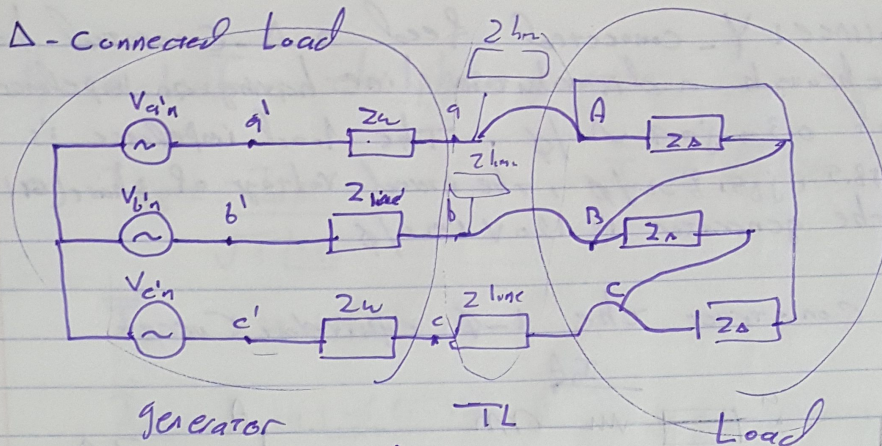 Δ-Connected Load
Z line
Va'n
a'
Zw
a
A
ZΔ
Z line
Vb'n
b'
Zwind
b
B
ZΔ
Vc'n
c'
Zw
c
Z line
C
ZΔ
generator
TL
Load